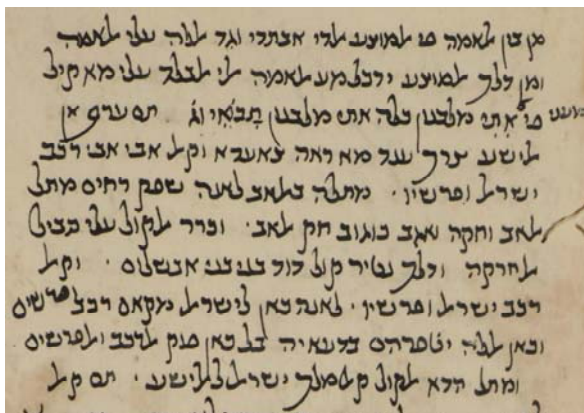 מן בין אלאמה פי אלמוצע אלדי אבתדי וגד אללה עלי אלאמה
ומן דלך אלמוצע ידכל מע אלאמה אלי אלבלד עלי מא קיל
פי אתי מלבנון כלה אתי מלבנון תבואי וג׳ תם ערף אן מעני
אלישע צרך ענד מא ראה צאעדא וקאל אבי אבי רכב
ישראל ופרשיו · מתלה באלאב לאנה שפק רחים מתל
אלאב וחקה ואגב כוגוב חק אלאב · וכרר אלקול עלי סביל
אלחרקה ודלך נטיר קול דוד בני בני אבשלום · וקאל
רכב ישראל ופרשיו · לאנה כאן לישראל מקאם רכב ופרשים
וכאן אללה ינצרהם בדעאיה בל כאן פוק אלרכב ואלפרשים
ומתל הדא אלקול קאל מלך ישראל לאלישע · תם קאל